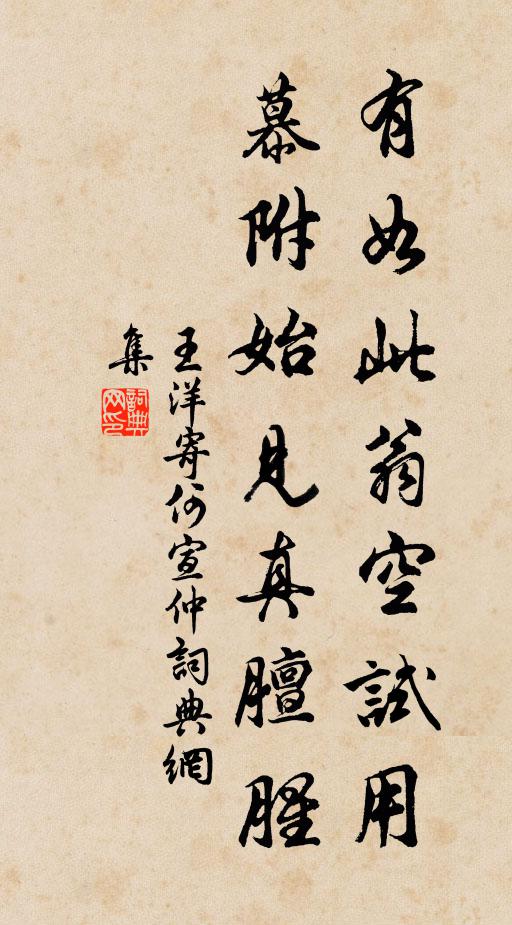 有如此翁空試用
慕附始見真膻腥
王洋寄何宣仲詞典網
集
詞典网印